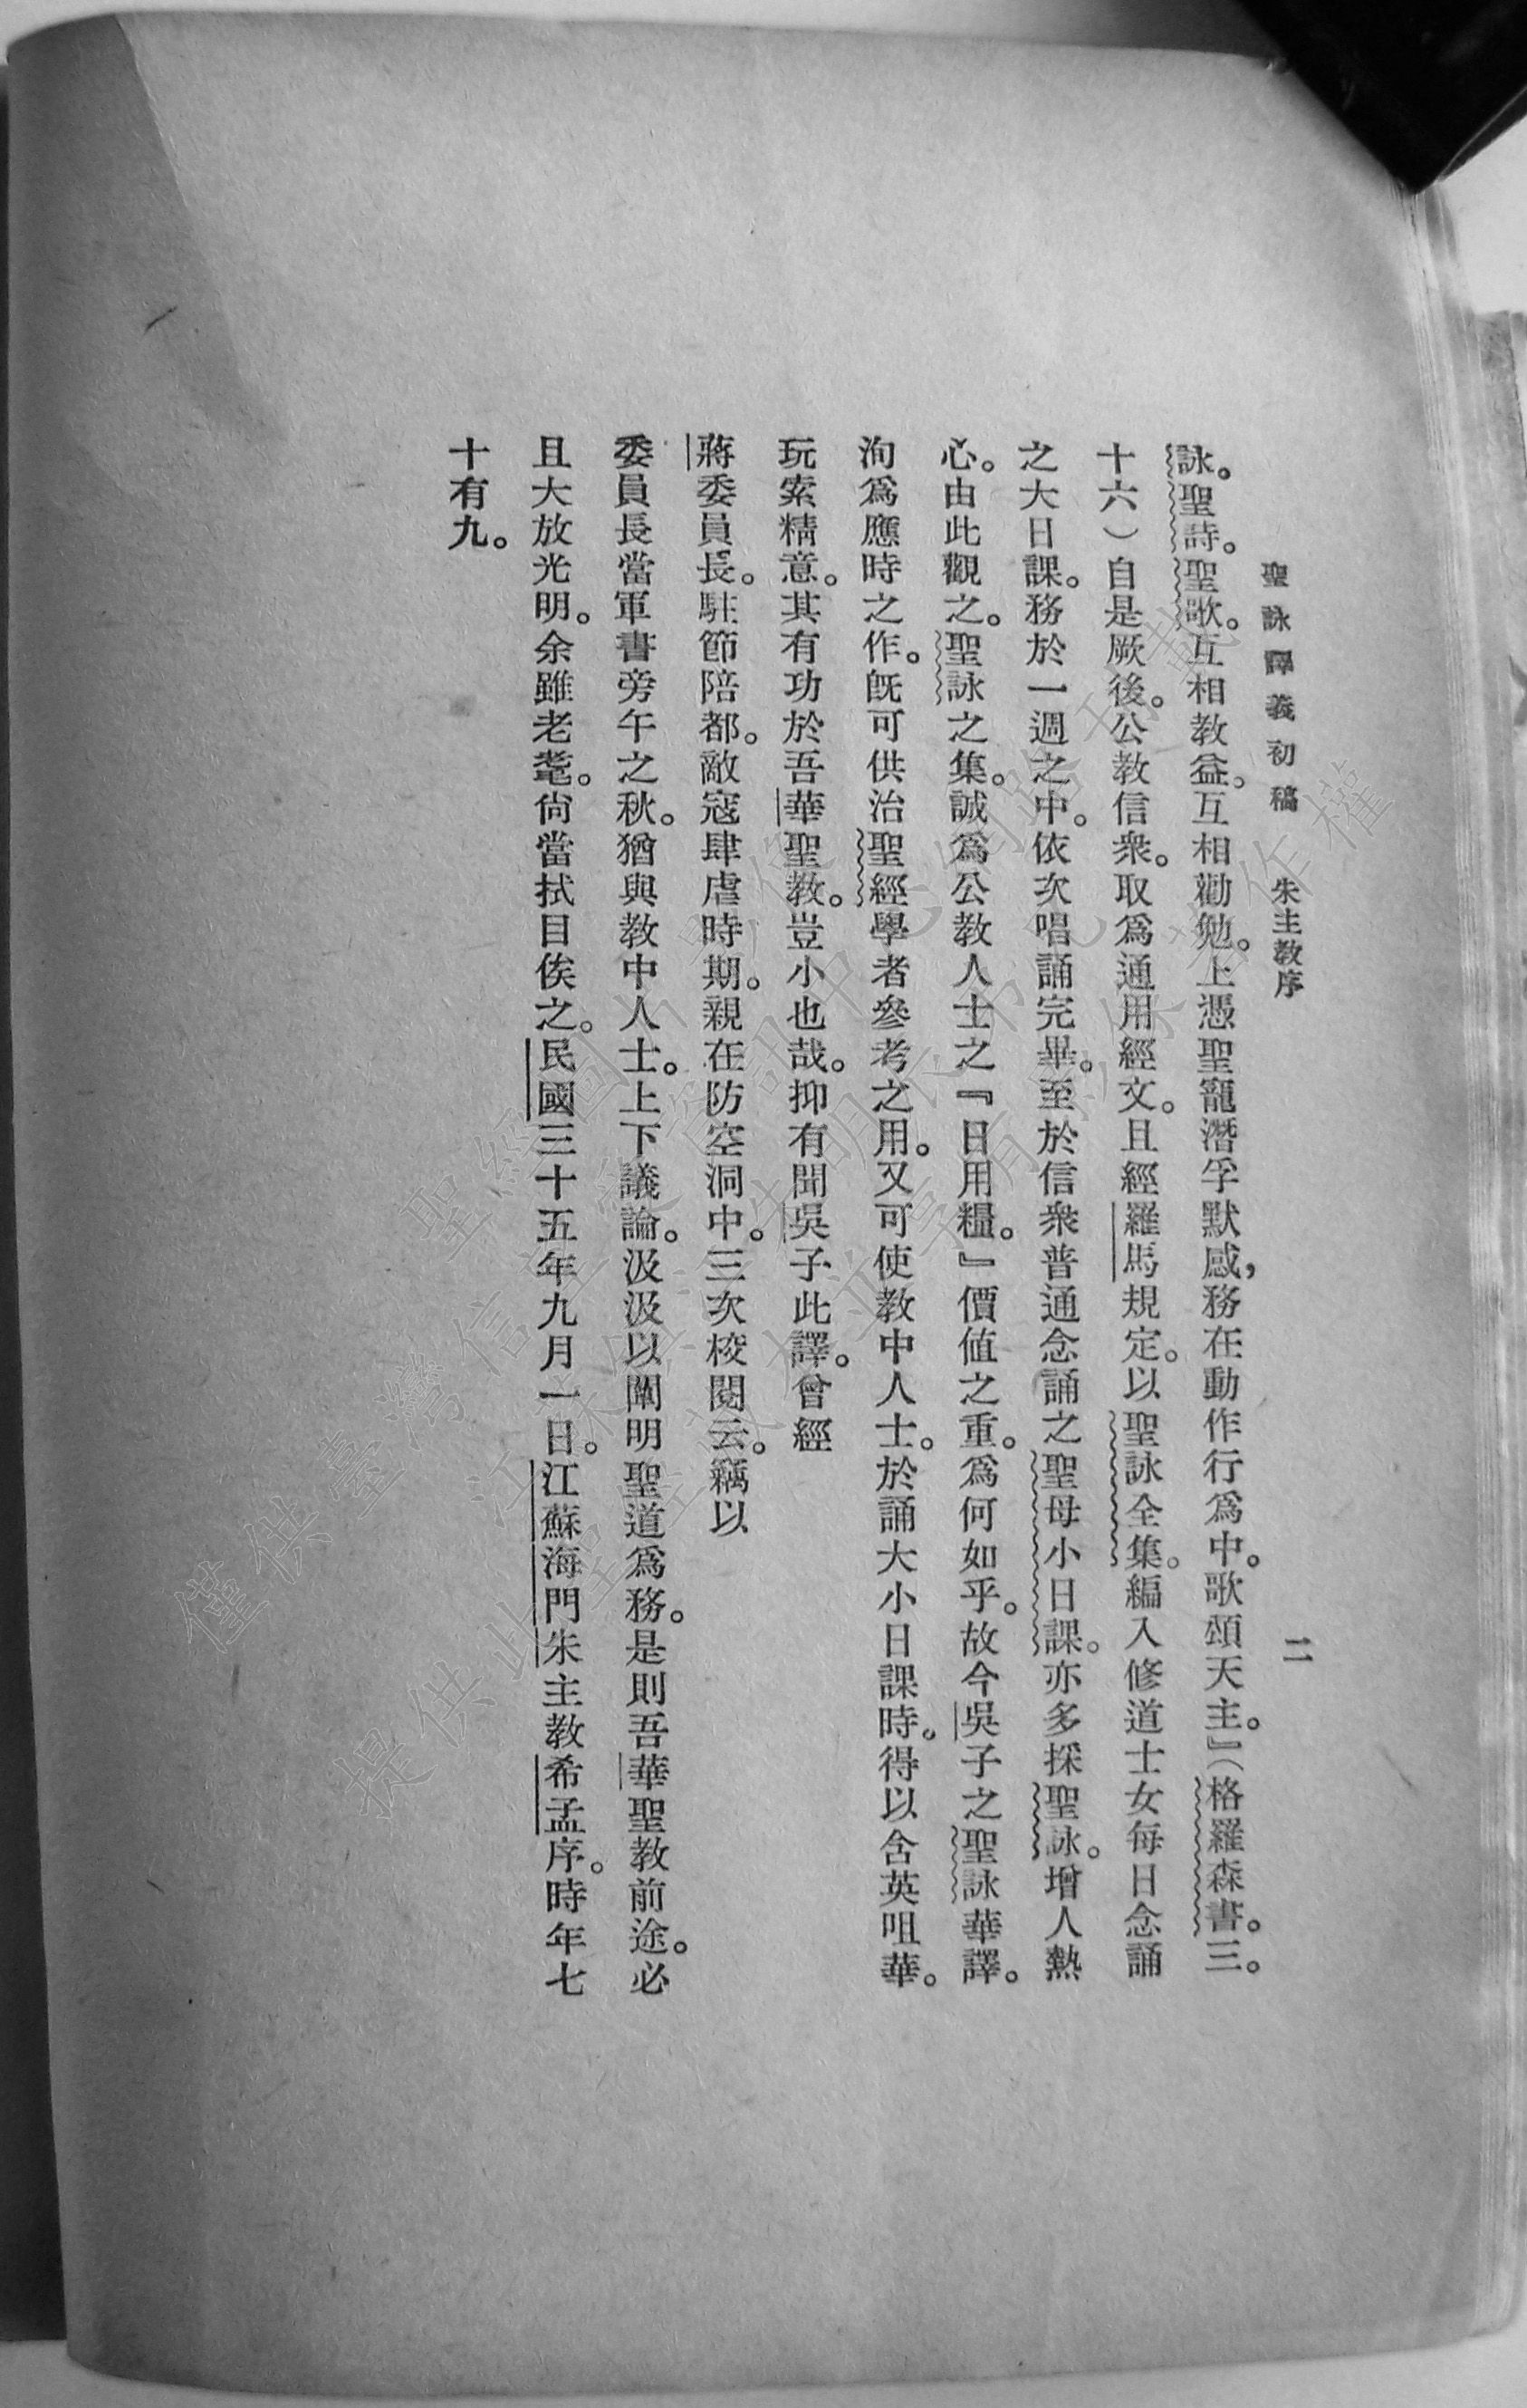 聖詠譯義初稿 朱主教序 二
詠。聖詩。聖歌。互相教益。互相勸勉。上憑聖寵潛孚默感,務在動作行爲中。歌頌天主。』（格羅森書。三。
十六）自是厥後。公教信衆。取爲通用經文。且經羅馬規定。以聖詠全集。編入修道士女每日念誦
之大日課。務於一週之中。依次唱誦完畢。至於信衆普通念誦之聖母小日課。亦多採聖詠。增人熱
心。由此觀之。聖詠之集。誠爲公教人士之『日用糧。』價値之重。爲何如乎。故今吳子之聖詠華譯。
洵爲應時之作。旣可供治聖經學者參考之用。又可使教中人士。於誦大小日課時。得以含英咀華。
玩索精意。其有功於吾華聖教。豈小也哉。抑有聞吳子此譯。曾經
蔣委員長。駐節陪都。敵寇肆虐時期。親在防空洞中。三次校閱云。竊以
委員長當軍書旁午之秋。猶與教中人士。上下議論。汲汲以闡明聖道爲務。是則吾華聖教前途。必
且大放光明。余雖老耄。尙當拭目俟之。民國三十五年九月一日。江蘇海門朱主教希孟序。時年七
十有九。